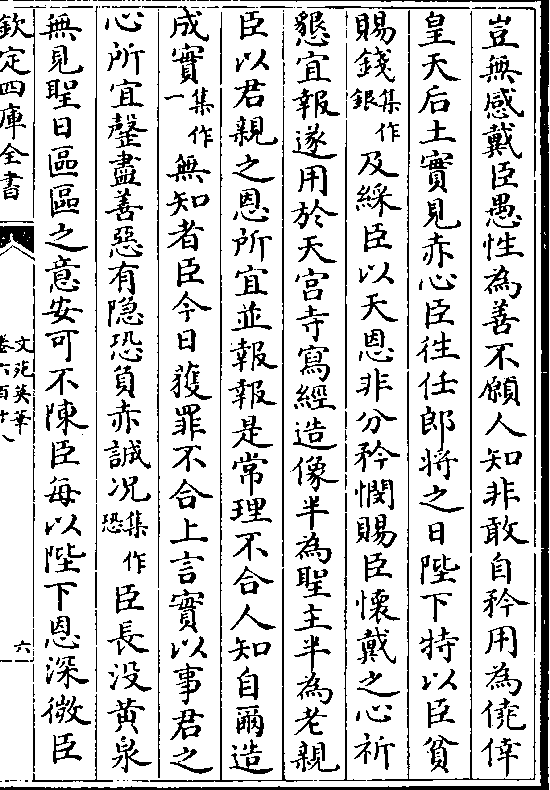 豈無感戴臣愚性為善不願人知非敢自矜用為僥倖
皇天后土實見赤心臣往任郎將之日陛下特以臣貧
賜錢集作銀及綵臣以天恩非分矜憫賜臣懷戴之心祈
懇宜報遂用於天宮寺寫經造像半為聖主半為老親
臣以君親之恩所宜並報報是常理不合人知自爾造
成實集作一無知者臣今日獲罪不合上言實以事君之
心所宜罄盡善惡有隐恐負赤誠况集作恐臣長没黄泉
無見聖日區區之意安可不陳臣每以陛下恩深微臣
欽定四庫全書
文苑英華
卷六百十八
六